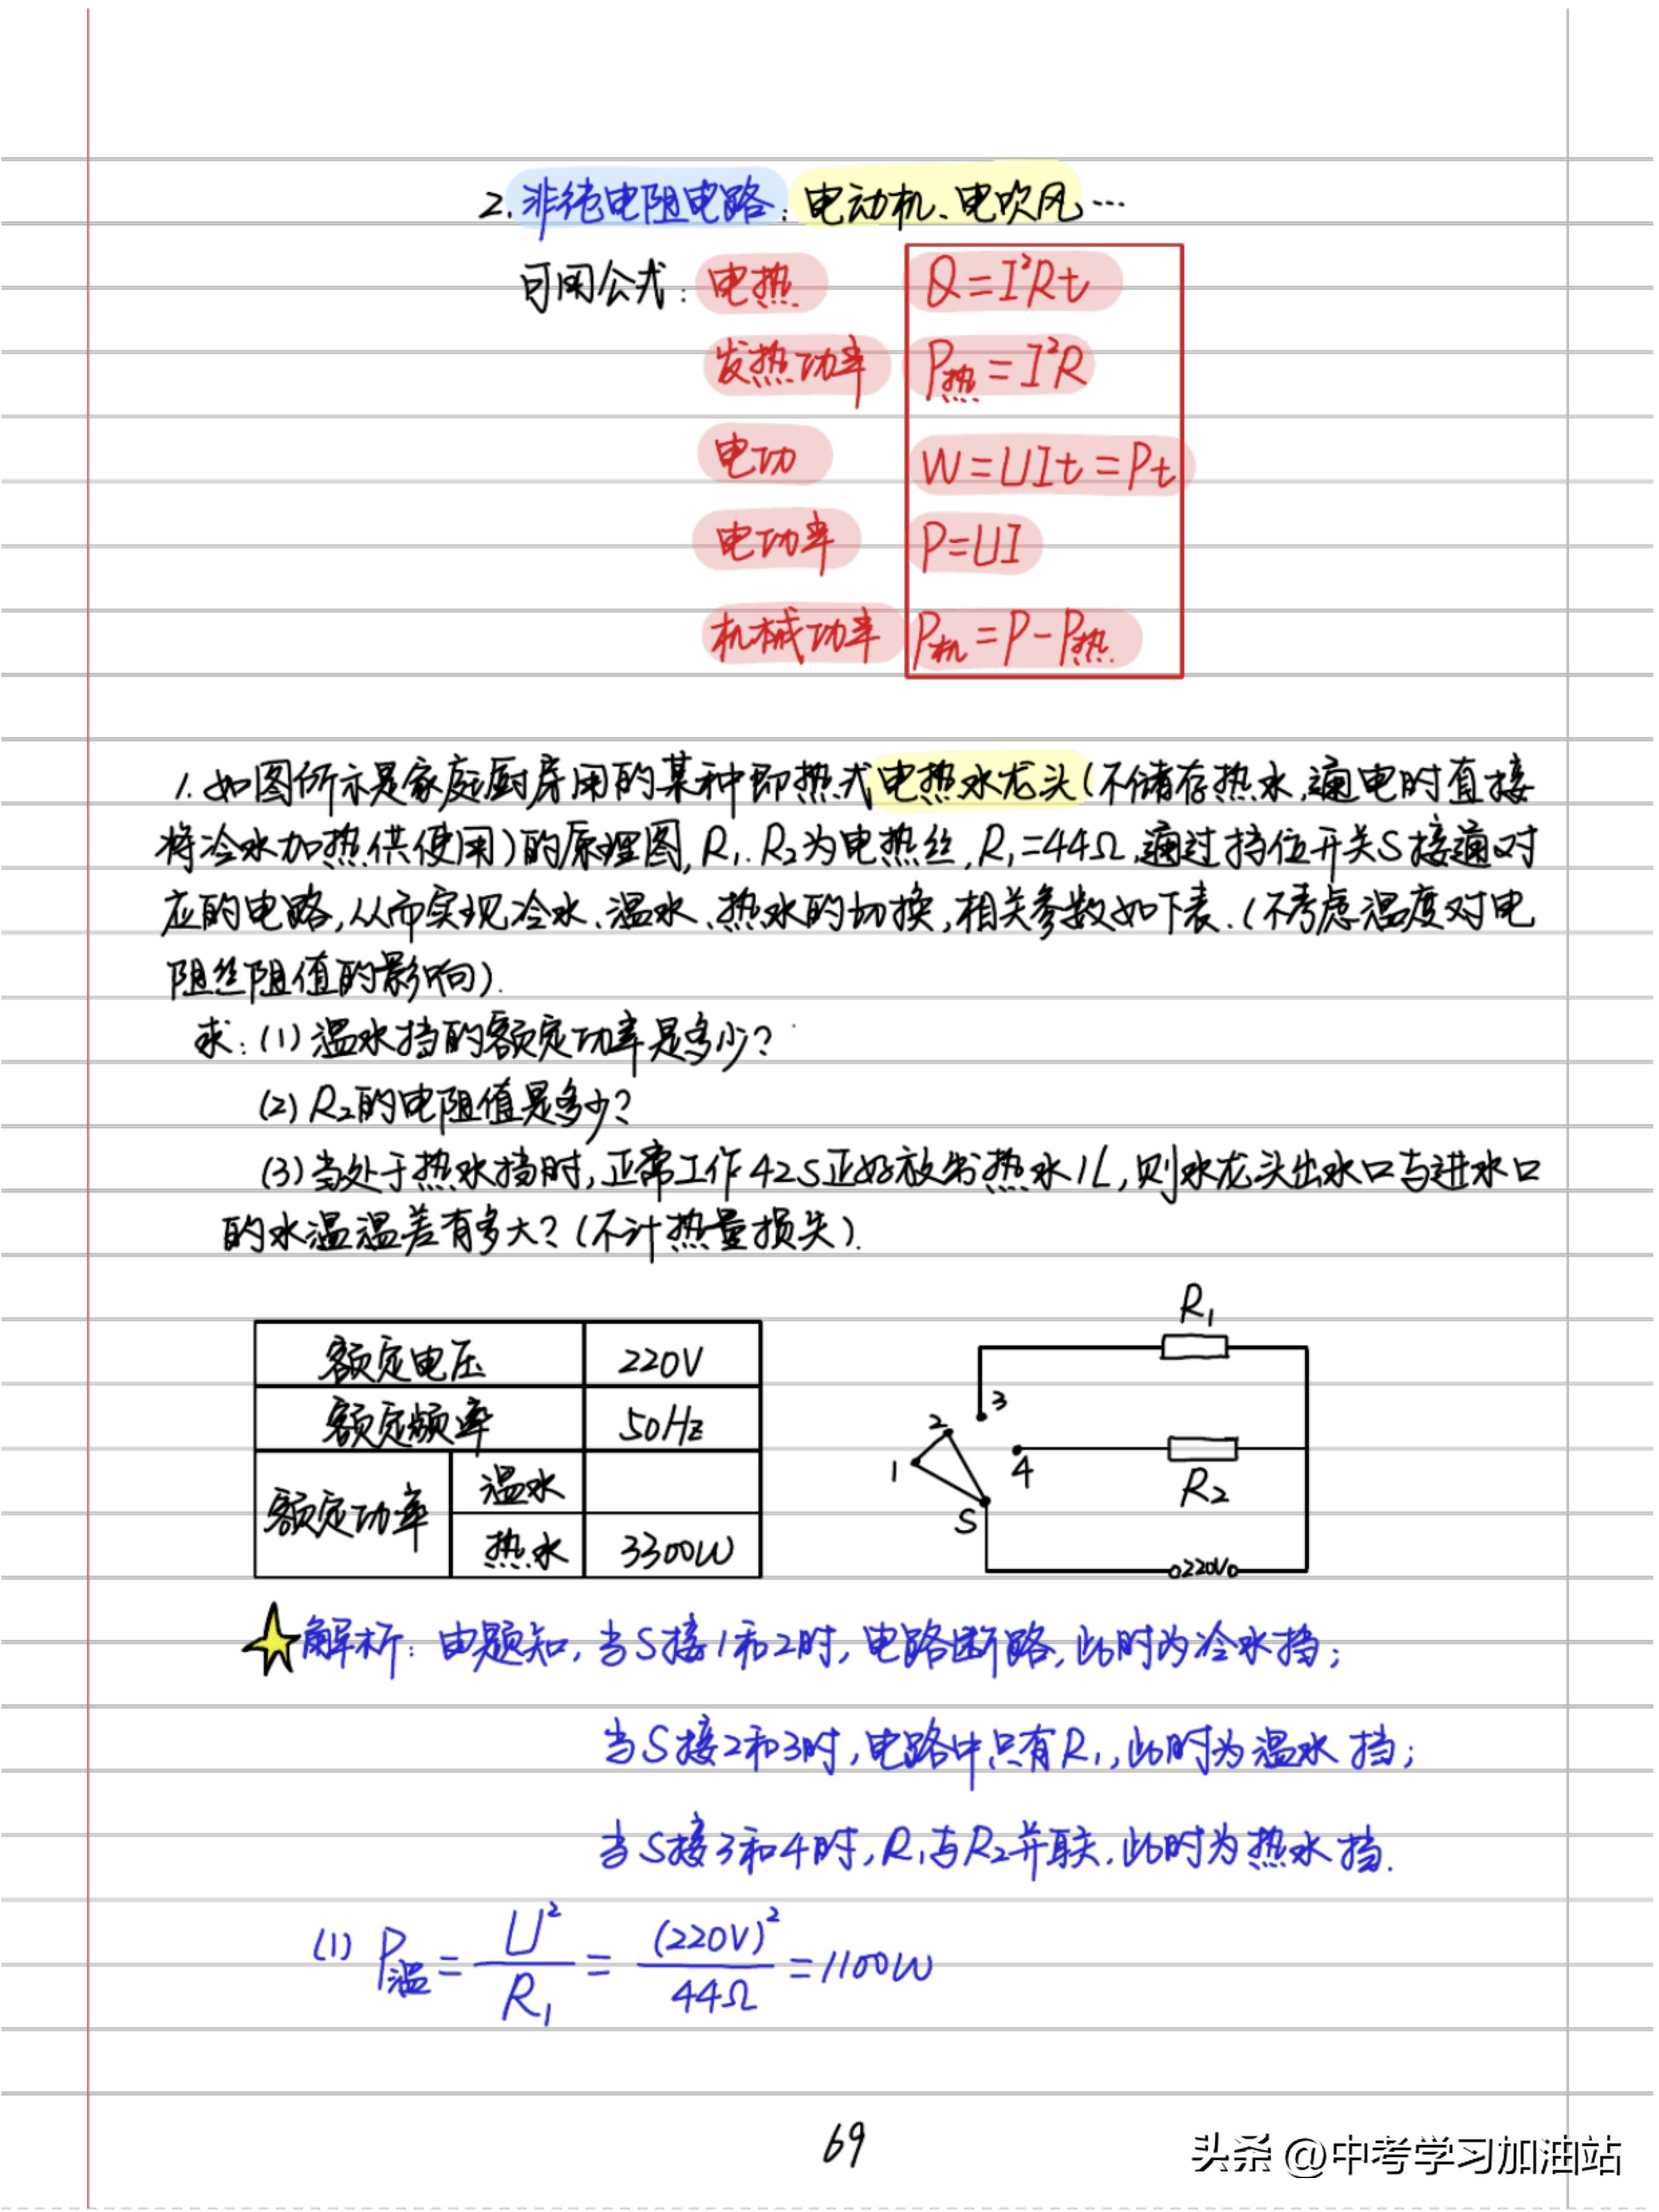 2. 非纯电阻电路：电动机、电吹风…
可用公式：电热 Q=I²Rt
发热功率 P热=I²R
电功 W=UIt=Pt
电功率 P=UI
机械功率 P机=P-P热
1. 如图所示是家庭厨房用的某种即热式电热水龙头(不储存热水,通电时直接
将冷水加热供使用)的原理图,R₁、R₂为电热丝,R₁=44Ω,通过挡位开关S接通对
应的电路,从而实现冷水、温水、热水的切换,相关参数如下表.(不考虑温度对电
阻丝阻值的影响).
求:(1)温水挡的额定功率是多少?
(2)R₂的电阻值是多少?
(3)当处于热水挡时,正常工作42S正好放出热水1L,则水龙头出水口与进水口
的水温温差有多大?(不计热量损失).
额定电压 220V
额定频率 50Hz
额定功率 温水
热水 3300W
R₁
3
2
1
4
R₂
S
220V
解析:由题知,当S接1和2时,电路断路,此时为冷水挡;
当S接2和3时,电路中只有R₁,此时为温水挡;
当S接3和4时,R₁与R₂并联,此时为热水挡.
(1) P温=U²/R₁=(220V)²/44Ω=1100W
69
头条 @中考学习加油站